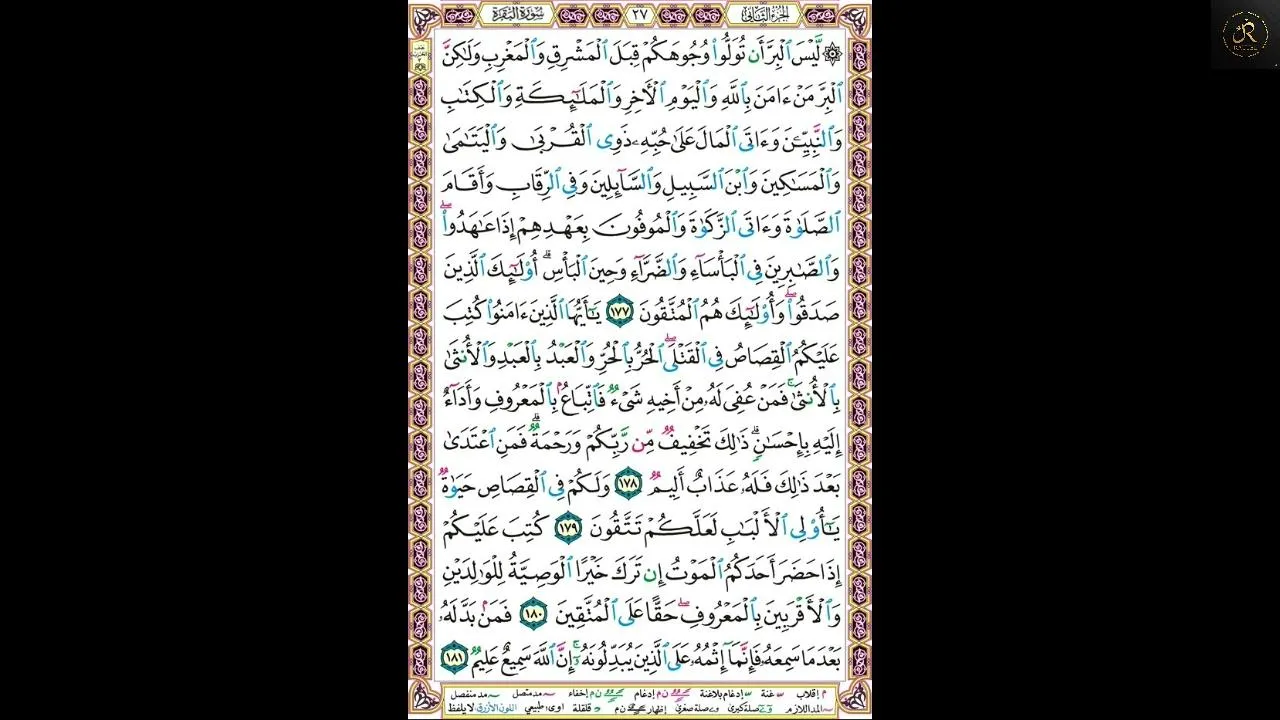 الجزء الثاني ٢٧ سورة البقرة
۞ لَّيْسَ ٱلْبِرَّ أَن تُوَلُّوا۟ وُجُوهَكُمْ قِبَلَ ٱلْمَشْرِقِ وَٱلْمَغْرِبِ وَلَٰكِنَّ
ٱلْبِرَّ مَنْ ءَامَنَ بِٱللَّهِ وَٱلْيَوْمِ ٱلْأَخِرِ وَٱلْمَلَٰٓئِكَةِ وَٱلْكِتَٰبِ
وَٱلنَّبِيِّۦنَ وَءَاتَى ٱلْمَالَ عَلَىٰ حُبِّهِۦ ذَوِى ٱلْقُرْبَىٰ وَٱلْيَتَٰمَىٰ
وَٱلْمَسَٰكِينَ وَٱبْنَ ٱلسَّبِيلِ وَٱلسَّآئِلِينَ وَفِى ٱلرِّقَابِ وَأَقَامَ
ٱلصَّلَوٰةَ وَءَاتَى ٱلزَّكَوٰةَ وَٱلْمُوفُونَ بِعَهْدِهِمْ إِذَا عَٰهَدُوا۟ ۖ
وَٱلصَّٰبِرِينَ فِى ٱلْبَأْسَآءِ وَٱلضَّرَّآءِ وَحِينَ ٱلْبَأْسِ ۗ أُو۟لَٰٓئِكَ ٱلَّذِينَ
صَدَقُوا۟ ۖ وَأُو۟لَٰٓئِكَ هُمُ ٱلْمُتَّقُونَ ١٧٧ يَٰٓأَيُّهَا ٱلَّذِينَ ءَامَنُوا۟ كُتِبَ
عَلَيْكُمُ ٱلْقِصَاصُ فِى ٱلْقَتْلَى ۖ ٱلْحُرُّ بِٱلْحُرِّ وَٱلْعَبْدُ بِٱلْعَبْدِ وَٱلْأُنثَىٰ
بِٱلْأُنثَىٰ ۚ فَمَنْ عُفِىَ لَهُۥ مِنْ أَخِيهِ شَىْءٌ فَٱتِّبَاعٌۢ بِٱلْمَعْرُوفِ وَأَدَآءٌ
إِلَيْهِ بِإِحْسَٰنٍ ۗ ذَٰلِكَ تَخْفِيفٌ مِّن رَّبِّكُمْ وَرَحْمَةٌ ۗ فَمَنِ ٱعْتَدَىٰ
بَعْدَ ذَٰلِكَ فَلَهُۥ عَذَابٌ أَلِيمٌ ١٧٨ وَلَكُمْ فِى ٱلْقِصَاصِ حَيَوٰةٌ
يَٰٓأُو۟لِى ٱلْأَلْبَٰبِ لَعَلَّكُمْ تَتَّقُونَ ١٧٩ كُتِبَ عَلَيْكُمْ
إِذَا حَضَرَ أَحَدَكُمُ ٱلْمَوْتُ إِن تَرَكَ خَيْرًا ٱلْوَصِيَّةُ لِلْوَٰلِدَيْنِ
وَٱلْأَقْرَبِينَ بِٱلْمَعْرُوفِ ۖ حَقًّا عَلَى ٱلْمُتَّقِينَ ١٨٠ فَمَنۢ بَدَّلَهُۥ
بَعْدَ مَا سَمِعَهُۥ فَإِنَّمَآ إِثْمُهُۥ عَلَى ٱلَّذِينَ يُبَدِّلُونَهُۥٓ ۚ إِنَّ ٱللَّهَ سَمِيعٌ عَلِيمٌ ١٨١
م إقلاب غنة إدغام بلاغنة ن م إدغام ن م إخفاء مد متصل مد منفصل
المد اللازم صلة كبرى صلة صغرى إظهار ن م قلقلة اوى، طبيعي اللون الأزرق لا يلفظ